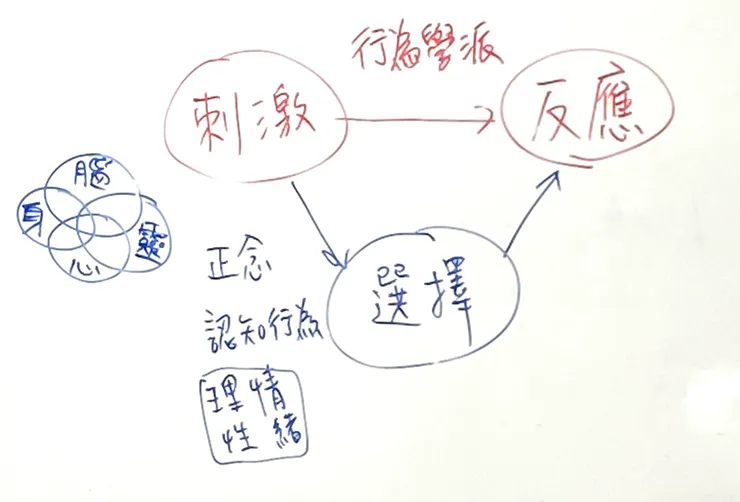 行為學派
刺激
反應
腦
身
靈
心
正念
選擇
認知行為
理情
性緒